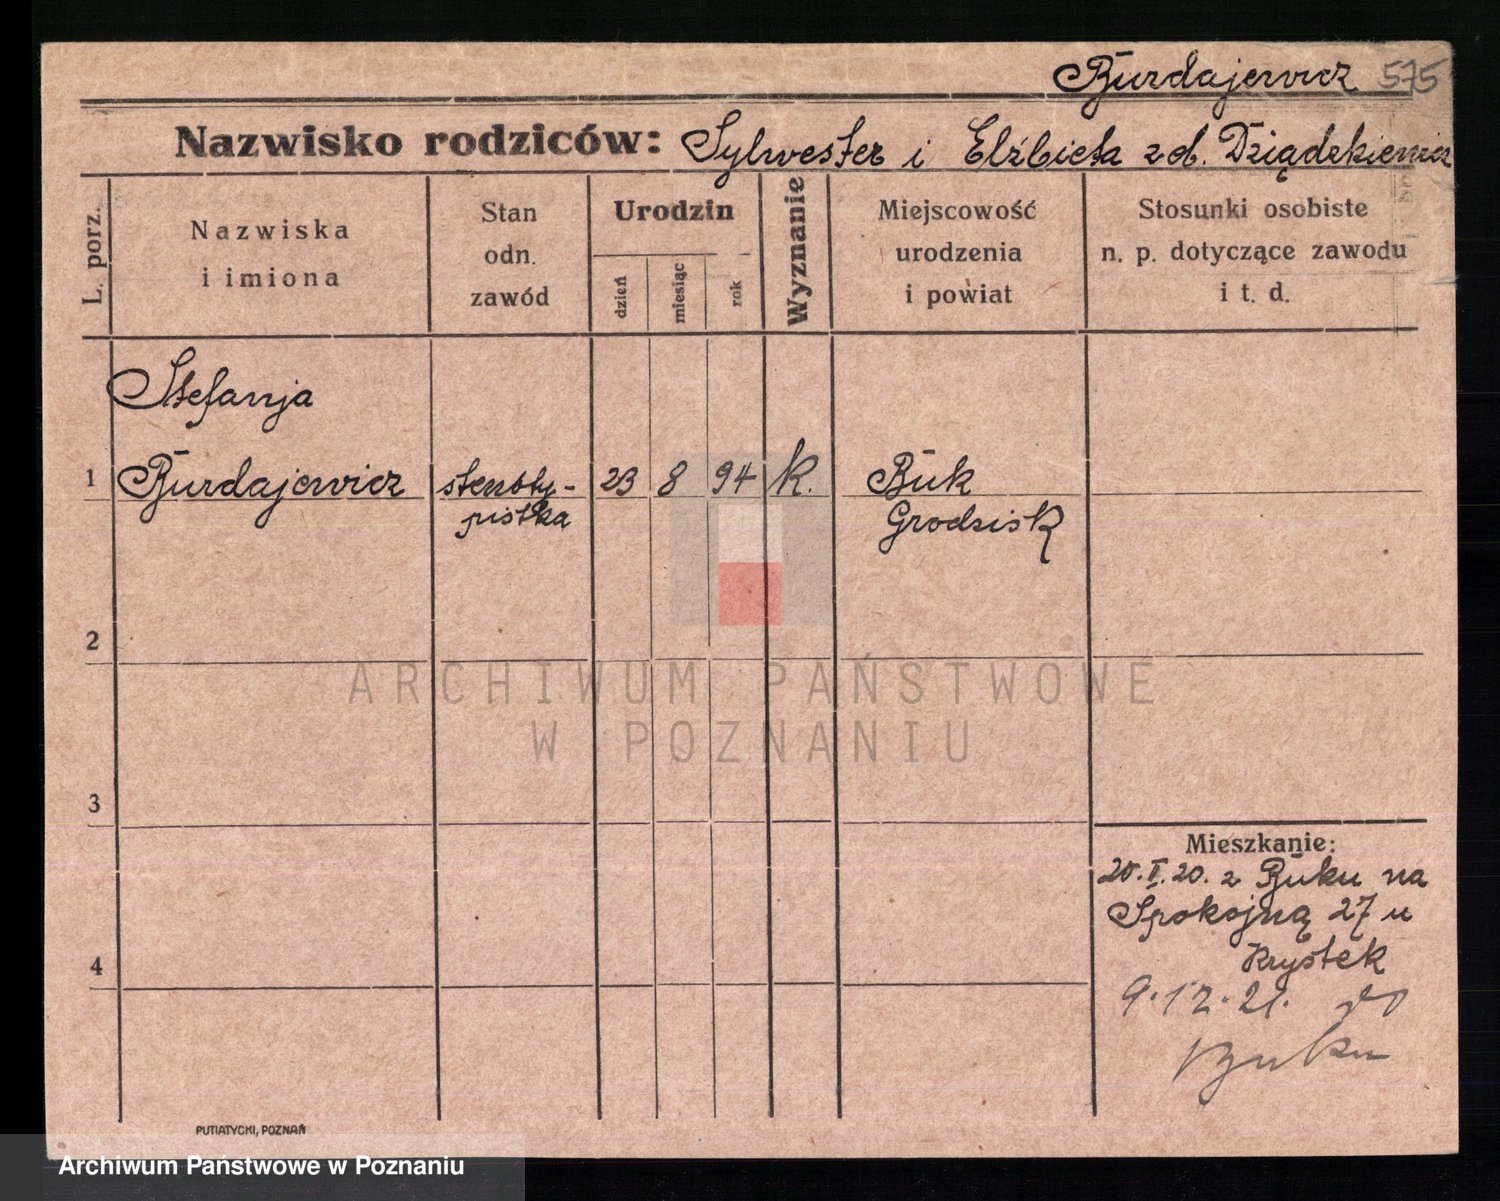 Burdajewicz 575
Nazwisko rodziców: Sylwester i Elżbieta z d. Dziądzkiewicz
L. porz.
Nazwiska
i imiona
Stan
odn.
zawód
Urodzin
dzień
miesiąc
rok
Wyznanie
Miejscowość
urodzenia
i powiat
Stosunki osobiste
n. p. dotyczące zawodu
i t. d.
Stefanja
1 Burdajewicz stenoty- 23 8 94 k. Buk
pistka Grodzisk
2
3
4
Mieszkanie:
20. z Buku na
Spokojną 27 u
Krystek
9.12.21. do
Buku
PUTIATYCKI, POZNAŃ
ARCHIWUM PAŃSTWOWE
W POZNANIU
Archiwum Państwowe w Poznaniu